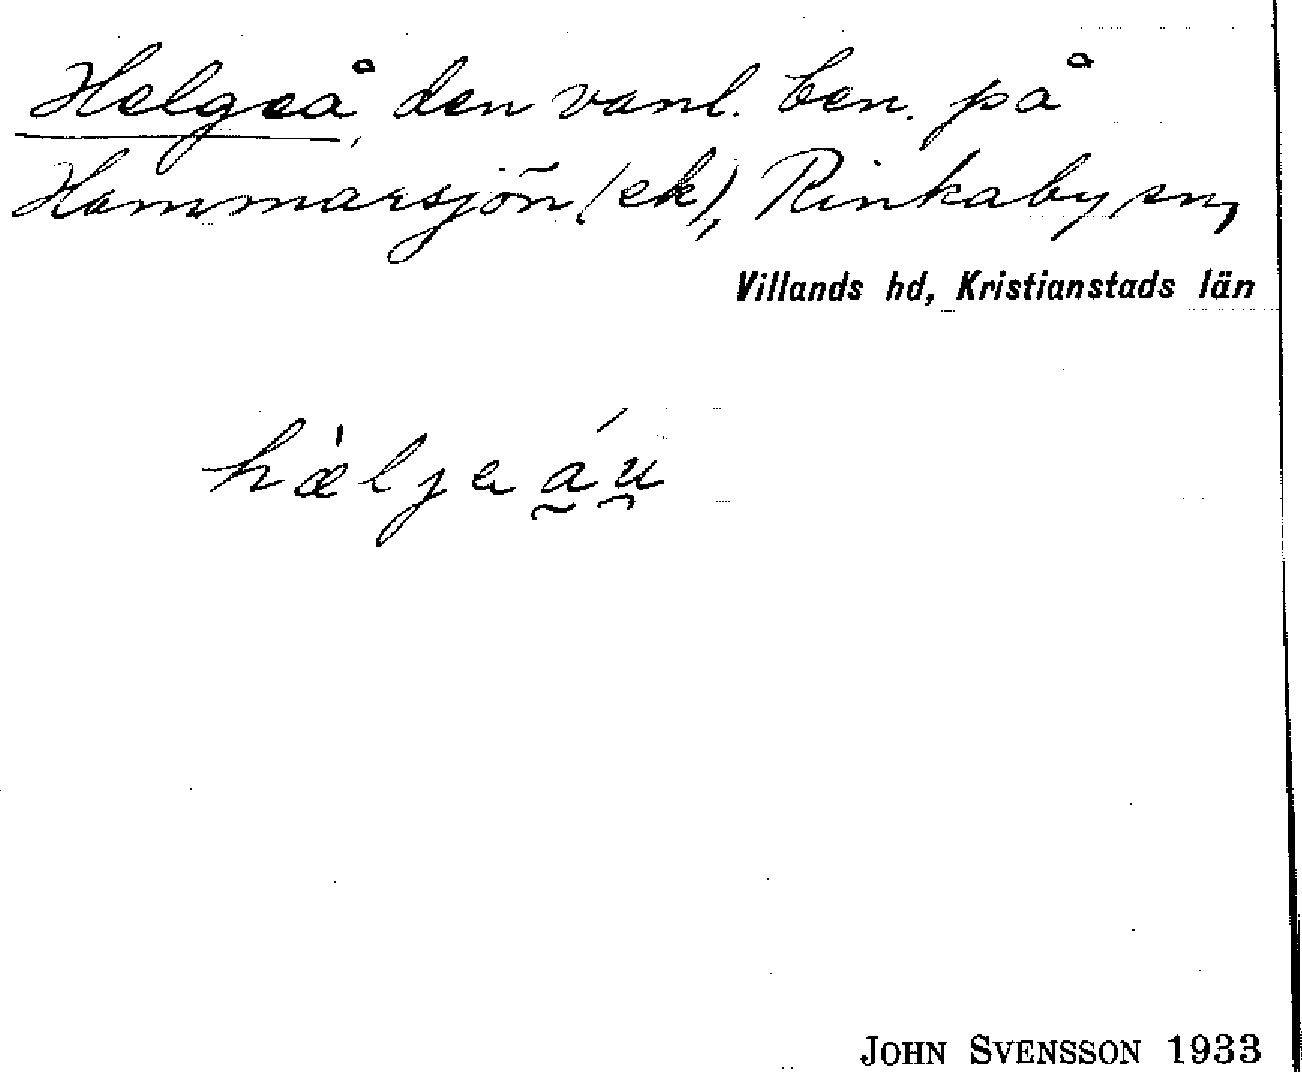 Helgeå, den vanl. ben. på
Hammarsjön (ek), Rinkaby sn,
Villands hd, Kristianstads län
hæ̀ljeáu
JOHN SVENSSON 1933